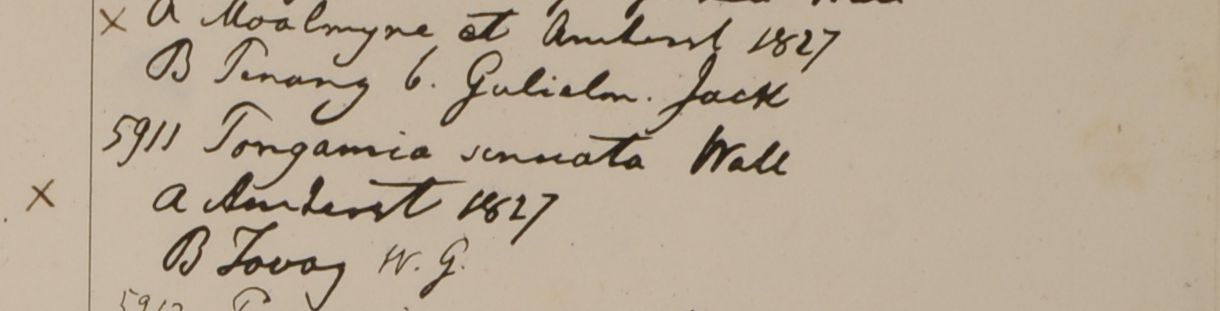 x A Moalmyne et Amherst 1827
B Penang b. Gulielm. Jack
5911 Pongamia sinuata Wall
x a Amherst 1827
B Tavoy W. G.
5912